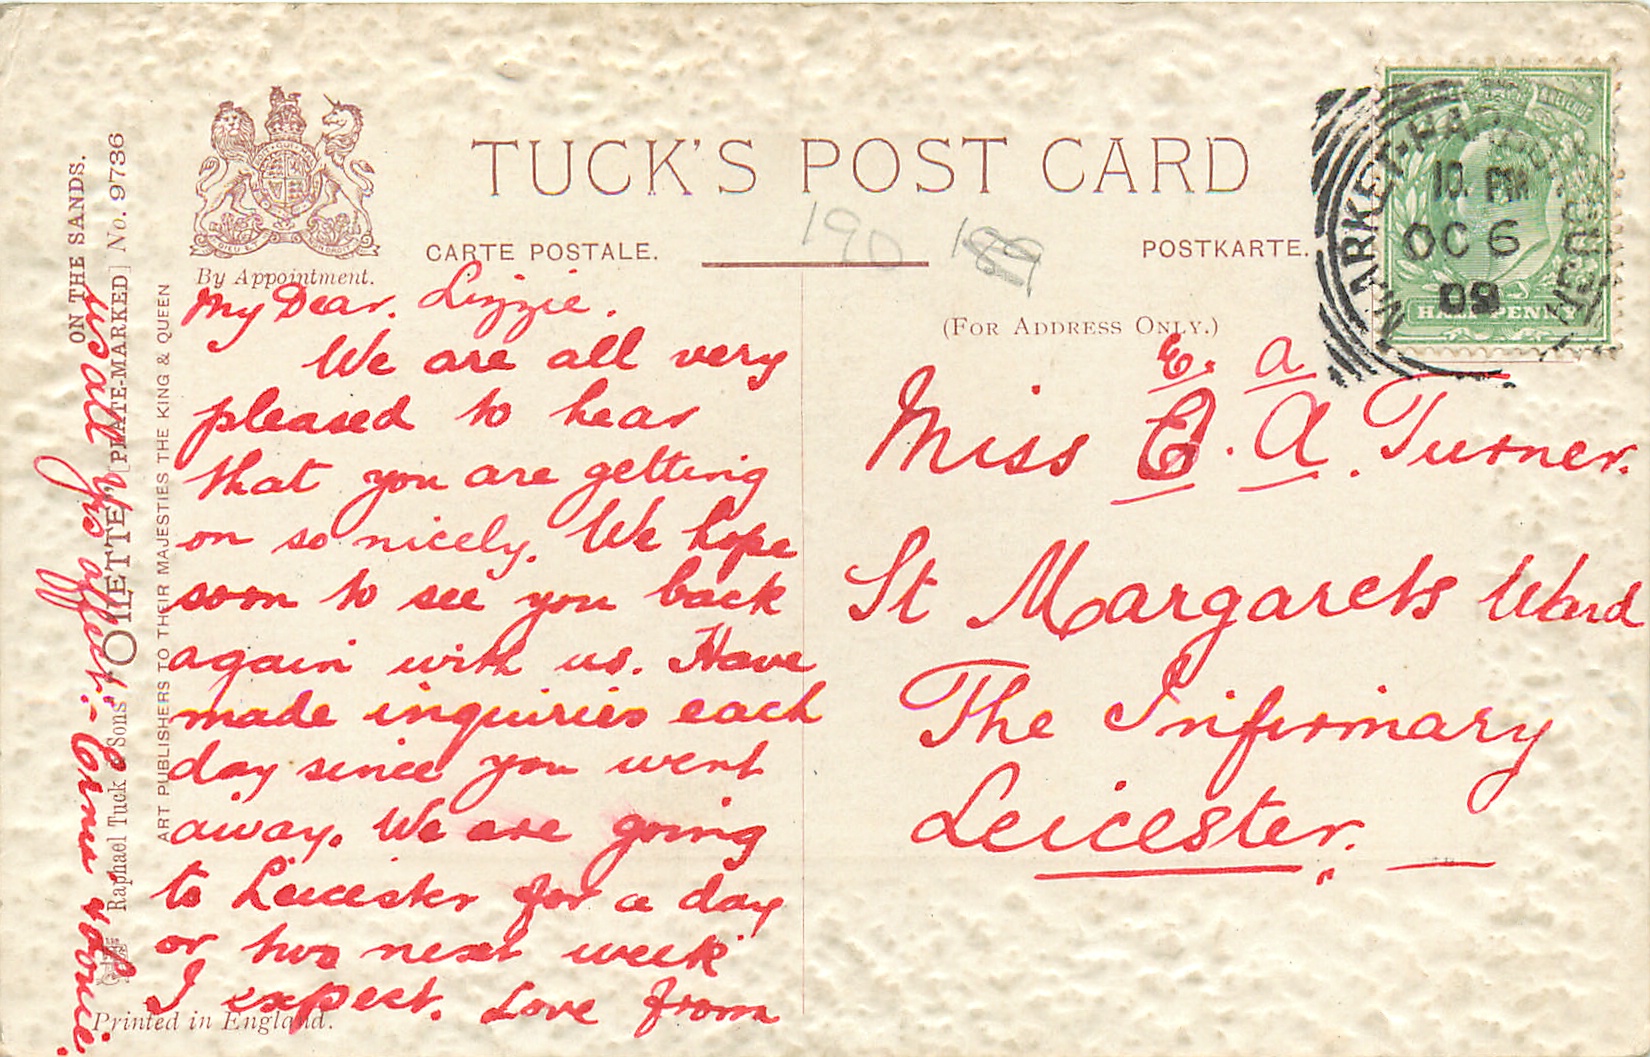 TUCK'S POST CARD
CARTE POSTALE.
POSTKARTE.
By Appointment.
(FOR ADDRESS ONLY.)
190
189
MARKET-HA
10. PM
OC 6
09
HALFPENNY
My Dear. Lizzie.
We are all very
pleased to hear
that you are getting
on so nicely. We hope
soon to see you back
again with us. Have
made inquiries each
day since you went
away. We are going
to Leicester for a day
or two next week
I expect. Love from
us all yrs affect:-
E. A
Miss E. A. Turner.
St Margarets Ward
The Infirmary
Leicester.
ON THE SANDS.
Raphael Tuck & Sons' "OILETTE" [PLATE-MARKED] No. 9736
ART PUBLISHERS TO THEIR MAJESTIES THE KING & QUEEN
Printed in England.